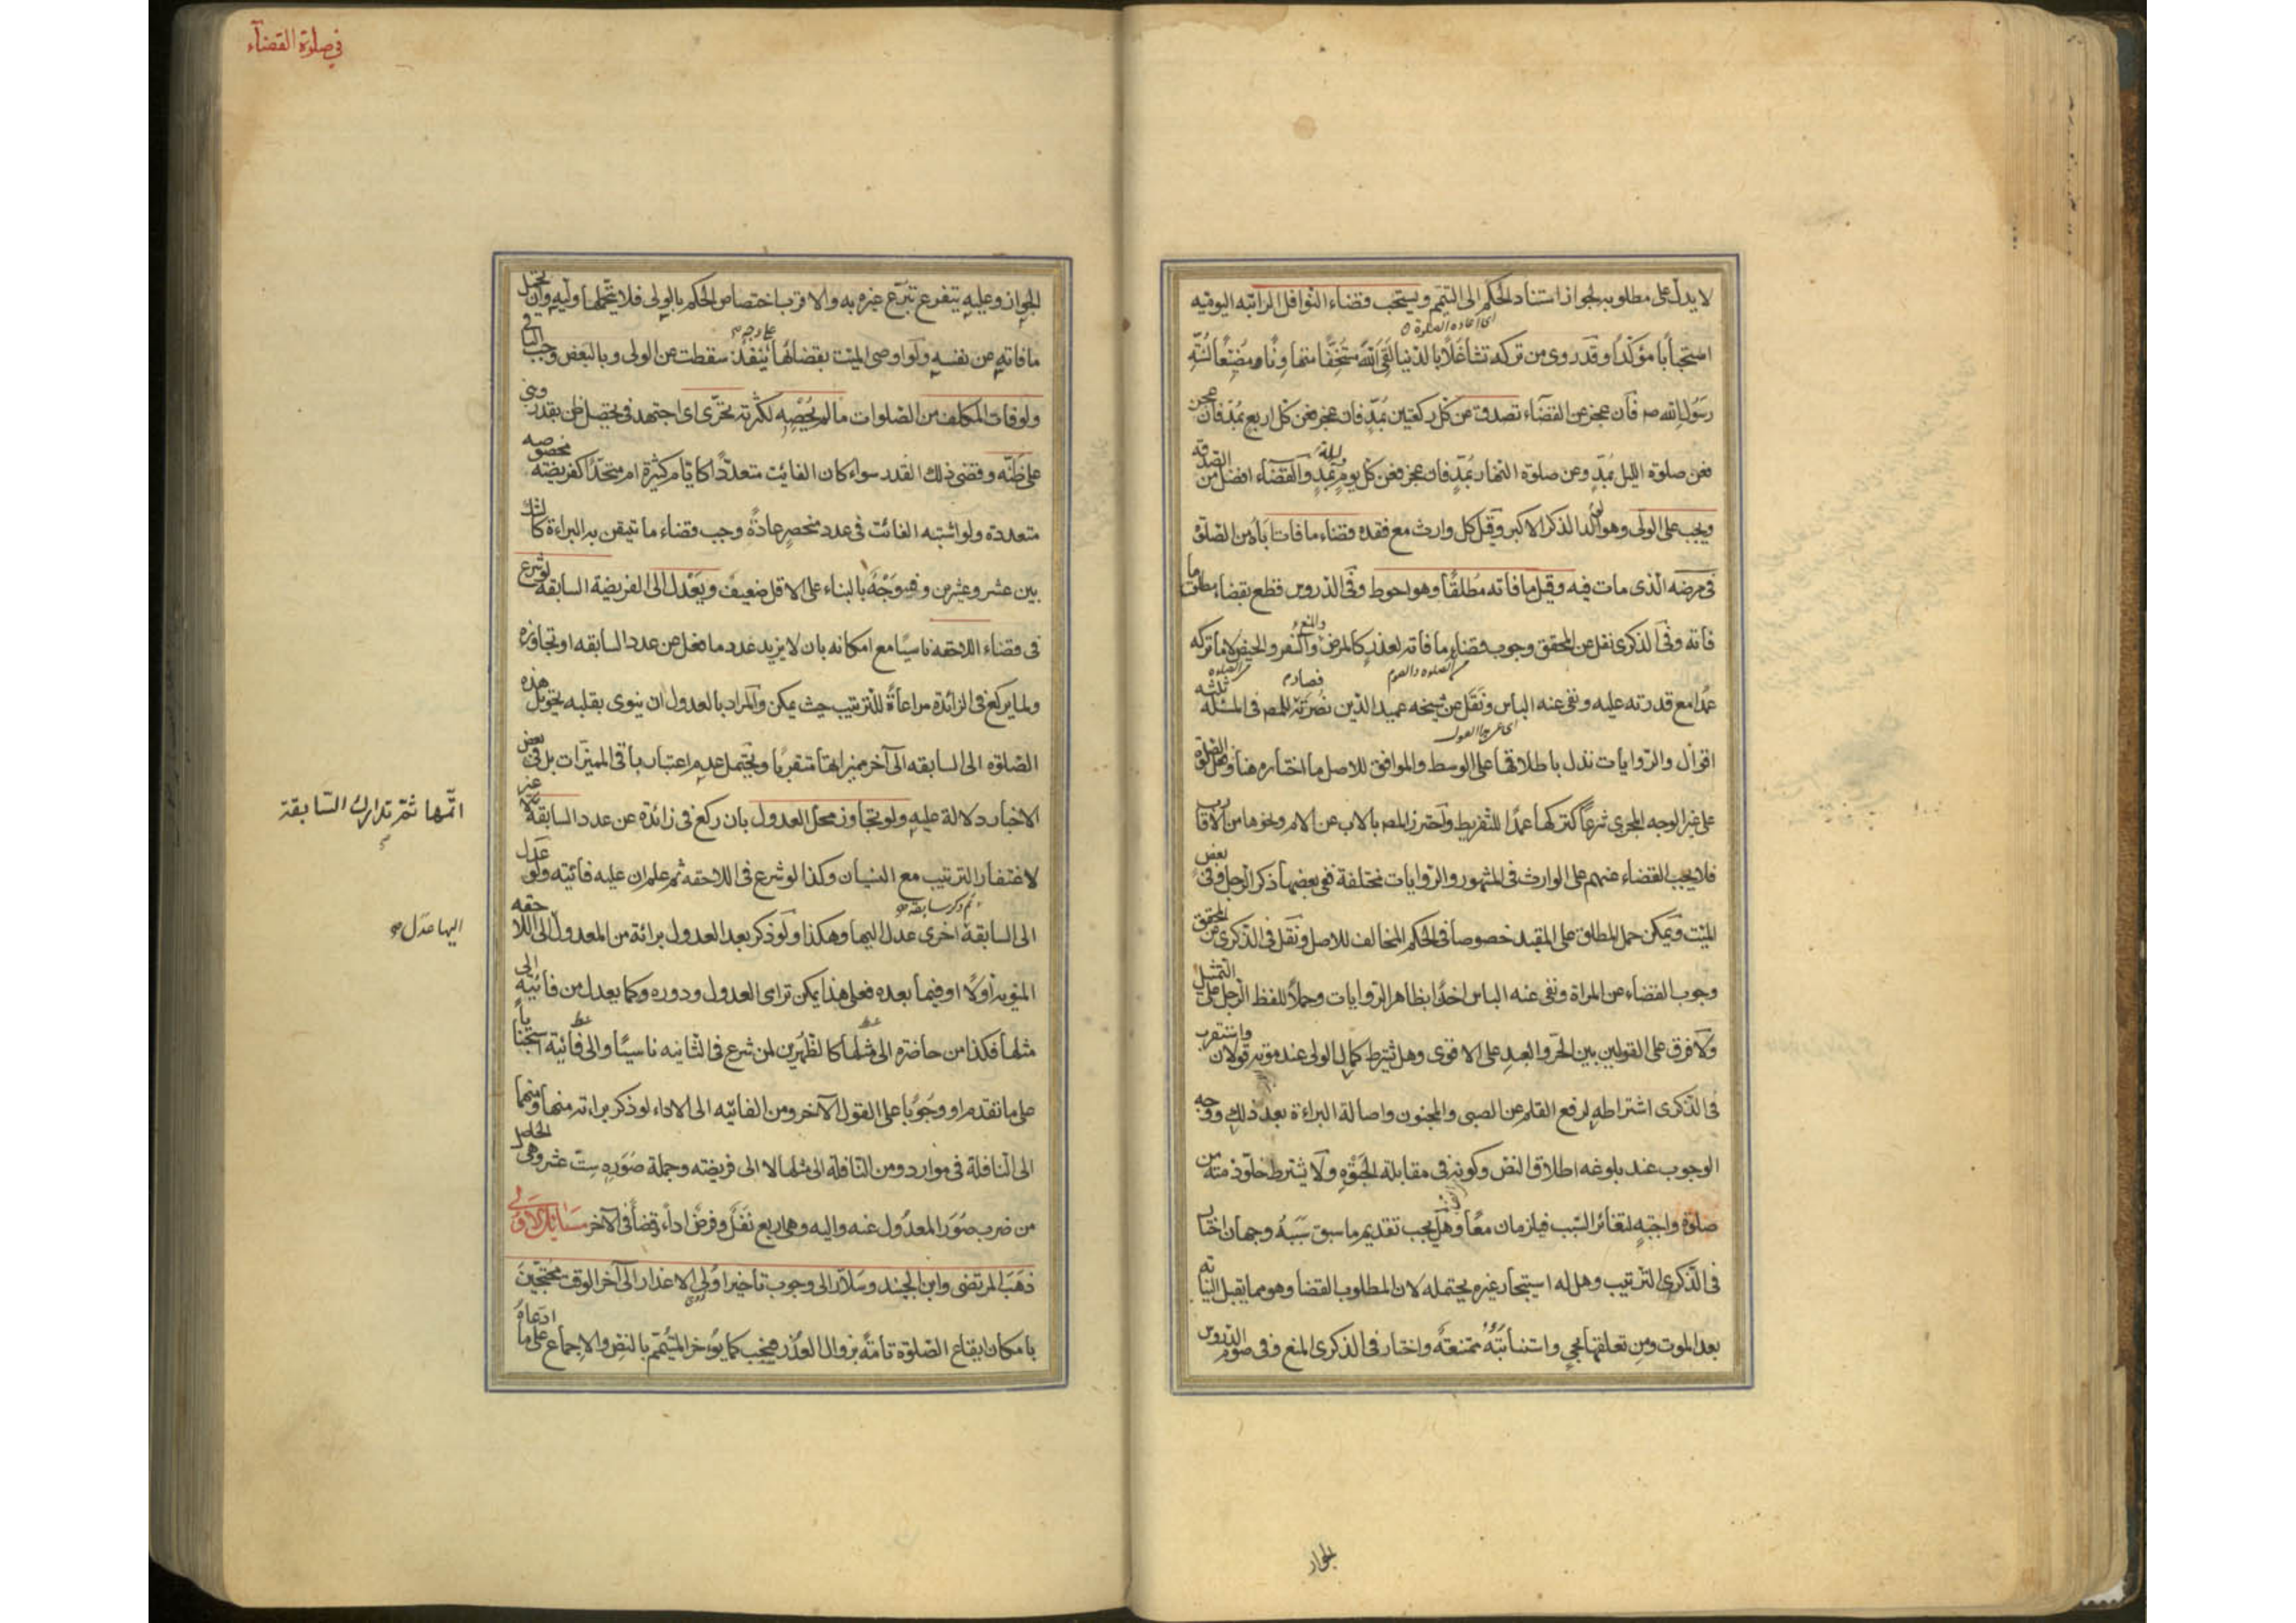 لا يدل على مطلوبه لجواز استناد الحكم الى التيمم ويستحب قضاء النوافل الراتبه اليوميه
استحبابا مؤكدا وقد روى من تركه تشاغلا بالدنيا لقى الله مستخفا متهاونا مضيعا لسنة
رسول الله ص فان عجز عن القضاء تصدق عن كل ركعتين بمد فان عجز فعن كل اربع بمد فان عجز
فعن صلوة الليل بمد وعن صلوة النهار بمد فان عجز فعن كل يوم بمد والقضاء افضل من الصدقة
ويجب على الولى وهو الولد الذكر الاكبر وقيل كل وارث مع فقده قضاء ما فات اباه من الصلوة
فى مرضه الذى مات فيه وقيل ما فاته مطلقا وهو احوط وفى الدروس قطع بقضاء مطلق ما
فاته وفى الذكرى نقل عن المحقق وجوب قضاء ما فاته لعذر كالمرض والسفر والحيض لا ما تركه
عمدا مع قدرته عليه ونفى عنه الباس ونقل عن شيخه عميد الدين نصرته للمص فى المسئلة ثلثه
اقوال والروايات تدل باطلاقها على الوسط والموافق للاصل ما اختاره هنا وفعل الصلوة
على غير الوجه المجزى شرعا كتركها عمدا للتفريط واحترز المص بالاب عن الام ونحوها من الاقارب
فلا يجب القضاء عنهم على الوارث فى المشهور والروايات مختلفة ففى بعضها ذكر الرجل وفى بعض
الميت ويمكن حمل المطلق على المقيد خصوصا فى الحكم المخالف للاصل ونقل فى الذكرى عن المحقق
وجوب القضاء عن المراة ونفى عنه الباس اخذا بظاهر الروايات وحملا للفظ الرجل على التمثيل
ولا فرق على القولين بين الحر والعبد على الاقوى وهل يشترط كمال الولى عند موته قولان واستقرب
فى الذكرى اشتراطه لرفع القلم عن الصبى والمجنون واصالة البراءة بعد ذلك ووجه
الوجوب عند بلوغه اطلاق النص وكونه فى مقابلة الحبوه ولا يشترط خلو ذمته من
صلوة واجبه لتغائر السبب فيلزمان معا وهل يجب تقديم ما سبق سببه وجهان اختار
فى الذكرى الترتيب وهل له استيجار غيره يحتمله لان المطلوب القضا وهو مما يقبل النيابه
بعد الموت ومن تعلقها بحى واستنابته ممتنعة واختار فى الذكرى المنع وفى صوم الدروس
الجواز
فى صلوة القضاء
الجواز وعليه يتفرع تبرع غيره به والاقرب اختصاص الحكم بالولى فلا يتحملها وليه وان تحمل
ما فاته عن نفسه ولو اوصى الميت بقضائها على وجه ينفذ سقطت عن الولى وبالبعض وجب الباقى
ولو فات المكلف من الصلوات ما لم يحصه لكثرته تحرى اى اجتهد فى تحصيل ظن بقدر ويبنى
على ظنه وقضى ذلك القدر سواء كان الفائت متعددا كايام كثيرة ام متحدا كفريضة مخصوصه
متعددة ولو اشتبه الفائت فى عدد منحصر عادة وجب قضاء ما تيقن به البراءة كالشك
بين عشر وعشرين وفيه وجه بالبناء على الاقل ضعيف ويعدل الى الفريضة السابقة لو شرع
فى قضاء اللاحقه ناسيا مع امكانه بان لا يزيد عدد ما فعل عن عدد السابقه او تجاوزه
ولما يركع فى الزائدة مراعاة للترتيب حيث يمكن والمراد بالعدول ان ينوى بقلبه تحويل هذه
الصلوه الى السابقه الى آخر مميزاتها متقربا ويحتمل عدم اعتبار باقى المميزات بل فى بعض
الاخبار دلالة عليه ولو تجاوز محل العدول بان ركع فى زائدة عن عدد السابقة
اتمها ثم تدارك السابقة
لاغتفار الترتيب مع النسيان وكذا لو شرع فى اللاحقه ثم علم ان عليه فائتة ولو عدل
الى السابقة ثم ذكر سابقة اخرى عدل اليها وهكذا ولو ذكر بعد العدول برائة من المعدول الى اللاحقه
اليها عدل
المنويه اولا او فيما بعده فعلى هذا يمكن ترامى العدول ودوره وكما يعدل من فائتة الى
مثلها فكذا من حاضرة الى مثلها كالظهرين لمن شرع فى الثانيه ناسيا والى فائتة استحبابا
على ما تقدم او وجوبا على القول الآخر ومن الفائته الى الاداء لو ذكر براءته منها ومنهما
الى النافلة فى موارد ومن النافلة الى مثلها لا الى فريضته وجملة صوره ست عشر وهى الحاصل
من ضرب صور المعدول عنه واليه وهى اربع نفل وفرض اداء وقضا فى الآخر مسائل الاولى
ذهب المرتضى وابن الجنيد وسلار الى وجوب تاخير اولى الاعذار الى آخر الوقت محتجين
بامكان ايقاع الصلوة تامة بزوال العذر فيجب كما يؤخر المتيمم بالنص والاجماع على ما ادعاه